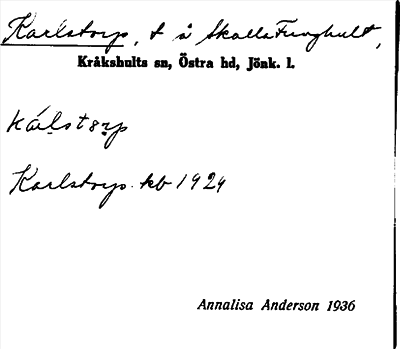 Karlstorp, t å Skalla Frughult,
Kråkshults sn, Östra hd, Jönk. l.
Karlstorp kb 1924
Annalisa Anderson 1936